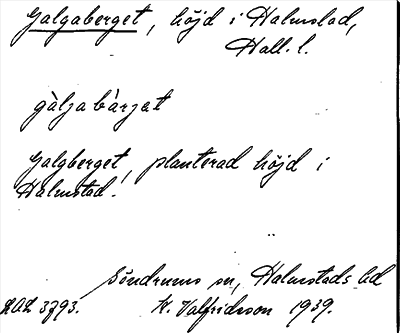 Galgaberget, höjd i Halmstad,
Hall. l.
gàljabàrjat
Galgberget, planterad höjd i
Halmstad.
Söndrums sn, Halmstads hd
LAL 3793. K. Valfridsson 1939.